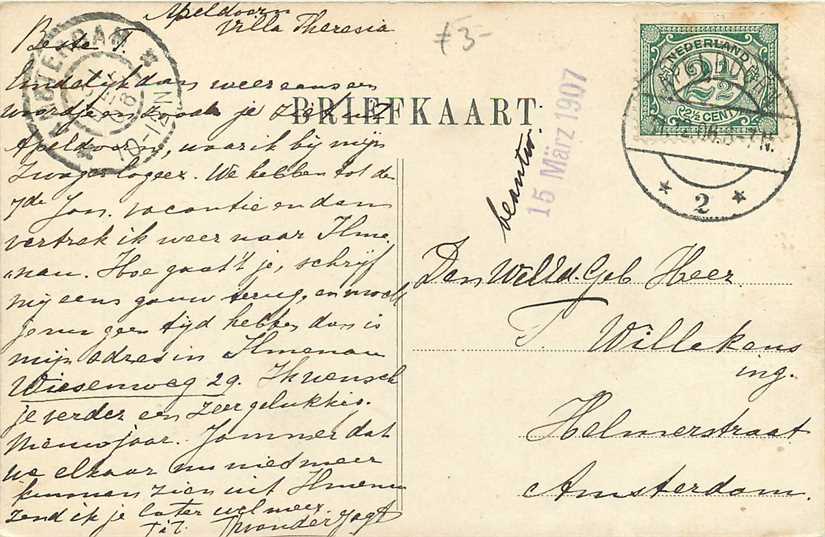 Apeldoorn
Villa Theresia
Beste T.
Eindelijk dan weer eens een
je
Apeldoorn, waar ik bij mijn
Zwager logeer. We hebben tot de
7de Jan. vacantie en dan
vertrek ik weer naar Ilme
nau. Hoe gaat't je, schrijf
mij eens gauw terug en mocht
je nu geen tijd hebben dan is
mijn adres in Ilmenau
Wiesenweg 29. Ik wensch
je verder een zeer gelukkig
Nieuwjaar. Jammer dat
we elkaar nu niet meer
kunnen zien uit Ilmenau
zend ik je later wel meer.
t.t.
f 3-
BRIEFKAART
beantw.
15 März 1907
NEDERLAND
2½
(2½ CENT)
APELDOORN
* 2 *
AMSTERDAM
10-12 N
Den WelEd. Geb. Heer
T. Willekens
ing.
Helmerstraat
Amsterdam.